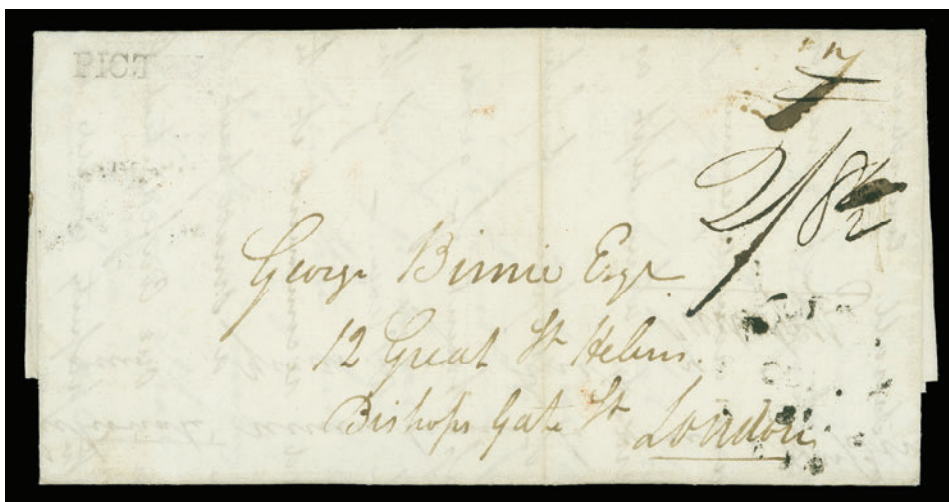 PICT
2/8½
George Birnie Esqr
12 Great St Helens
Bishops Gate St London